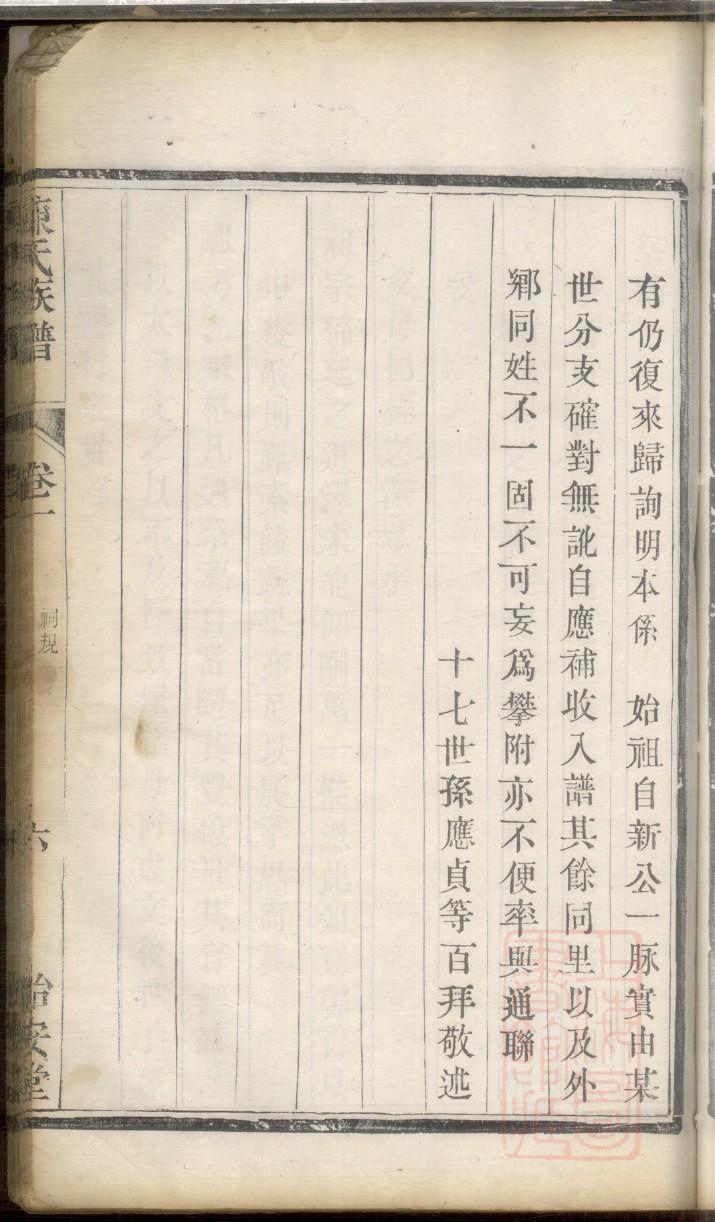 有仍復來歸詢明本係　始祖自新公一脉實由某
世分支確對無訛自應補收入譜其餘同里以及外
鄉同姓不一固不可妄爲攀附亦不便率與通聯
十七世孫應貞等百拜敬述
陳氏族譜　卷一　祠規　六　治安堂